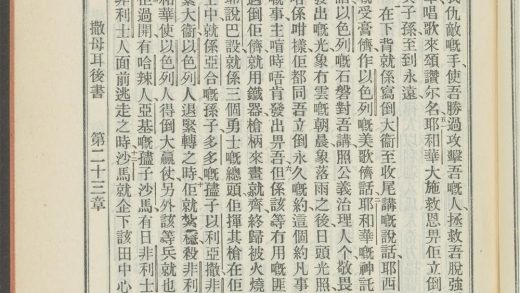 我仇敵嘅手使吾勝過攻擊吾嘅人拯救吾脫強
華唱歌來頌讚尔名耶和華大施救恩畀佢立倒
子孫至到永遠
在下背就係寫倒大衞至收尾講嘅說話耶西
嘅受膏儕作以色列嘅美歌儕話耶和華嘅神託
話以色列嘅石磐對吾講照公義治理人个敬畏
發出嘅光象冇雲嘅朝晨象落雨之後日頭光照
係咁樣佢都同吾立倒永久嘅約這個約凡事
嘅事主唔時唔肯發出畀吾但係該等冇用嘅匪
過倒佢儕就用鐵器槍柄來就齊終歸被火燒
師說巴設就係三個勇士嘅總頭佢揮其槍在佢
士中就係亞合嘅孫子多多嘅孻子以利亞撒非
大衞以色列人退緊轉之時佢就極殺非利
和華使以色列人得倒大贏仗另外該等兵就也
佢過開有哈辣人亞基嘅孻子沙馬有日非利士
非利士人面前逃走之時沙馬就企下該田中心
撒母耳後書 第二十三章